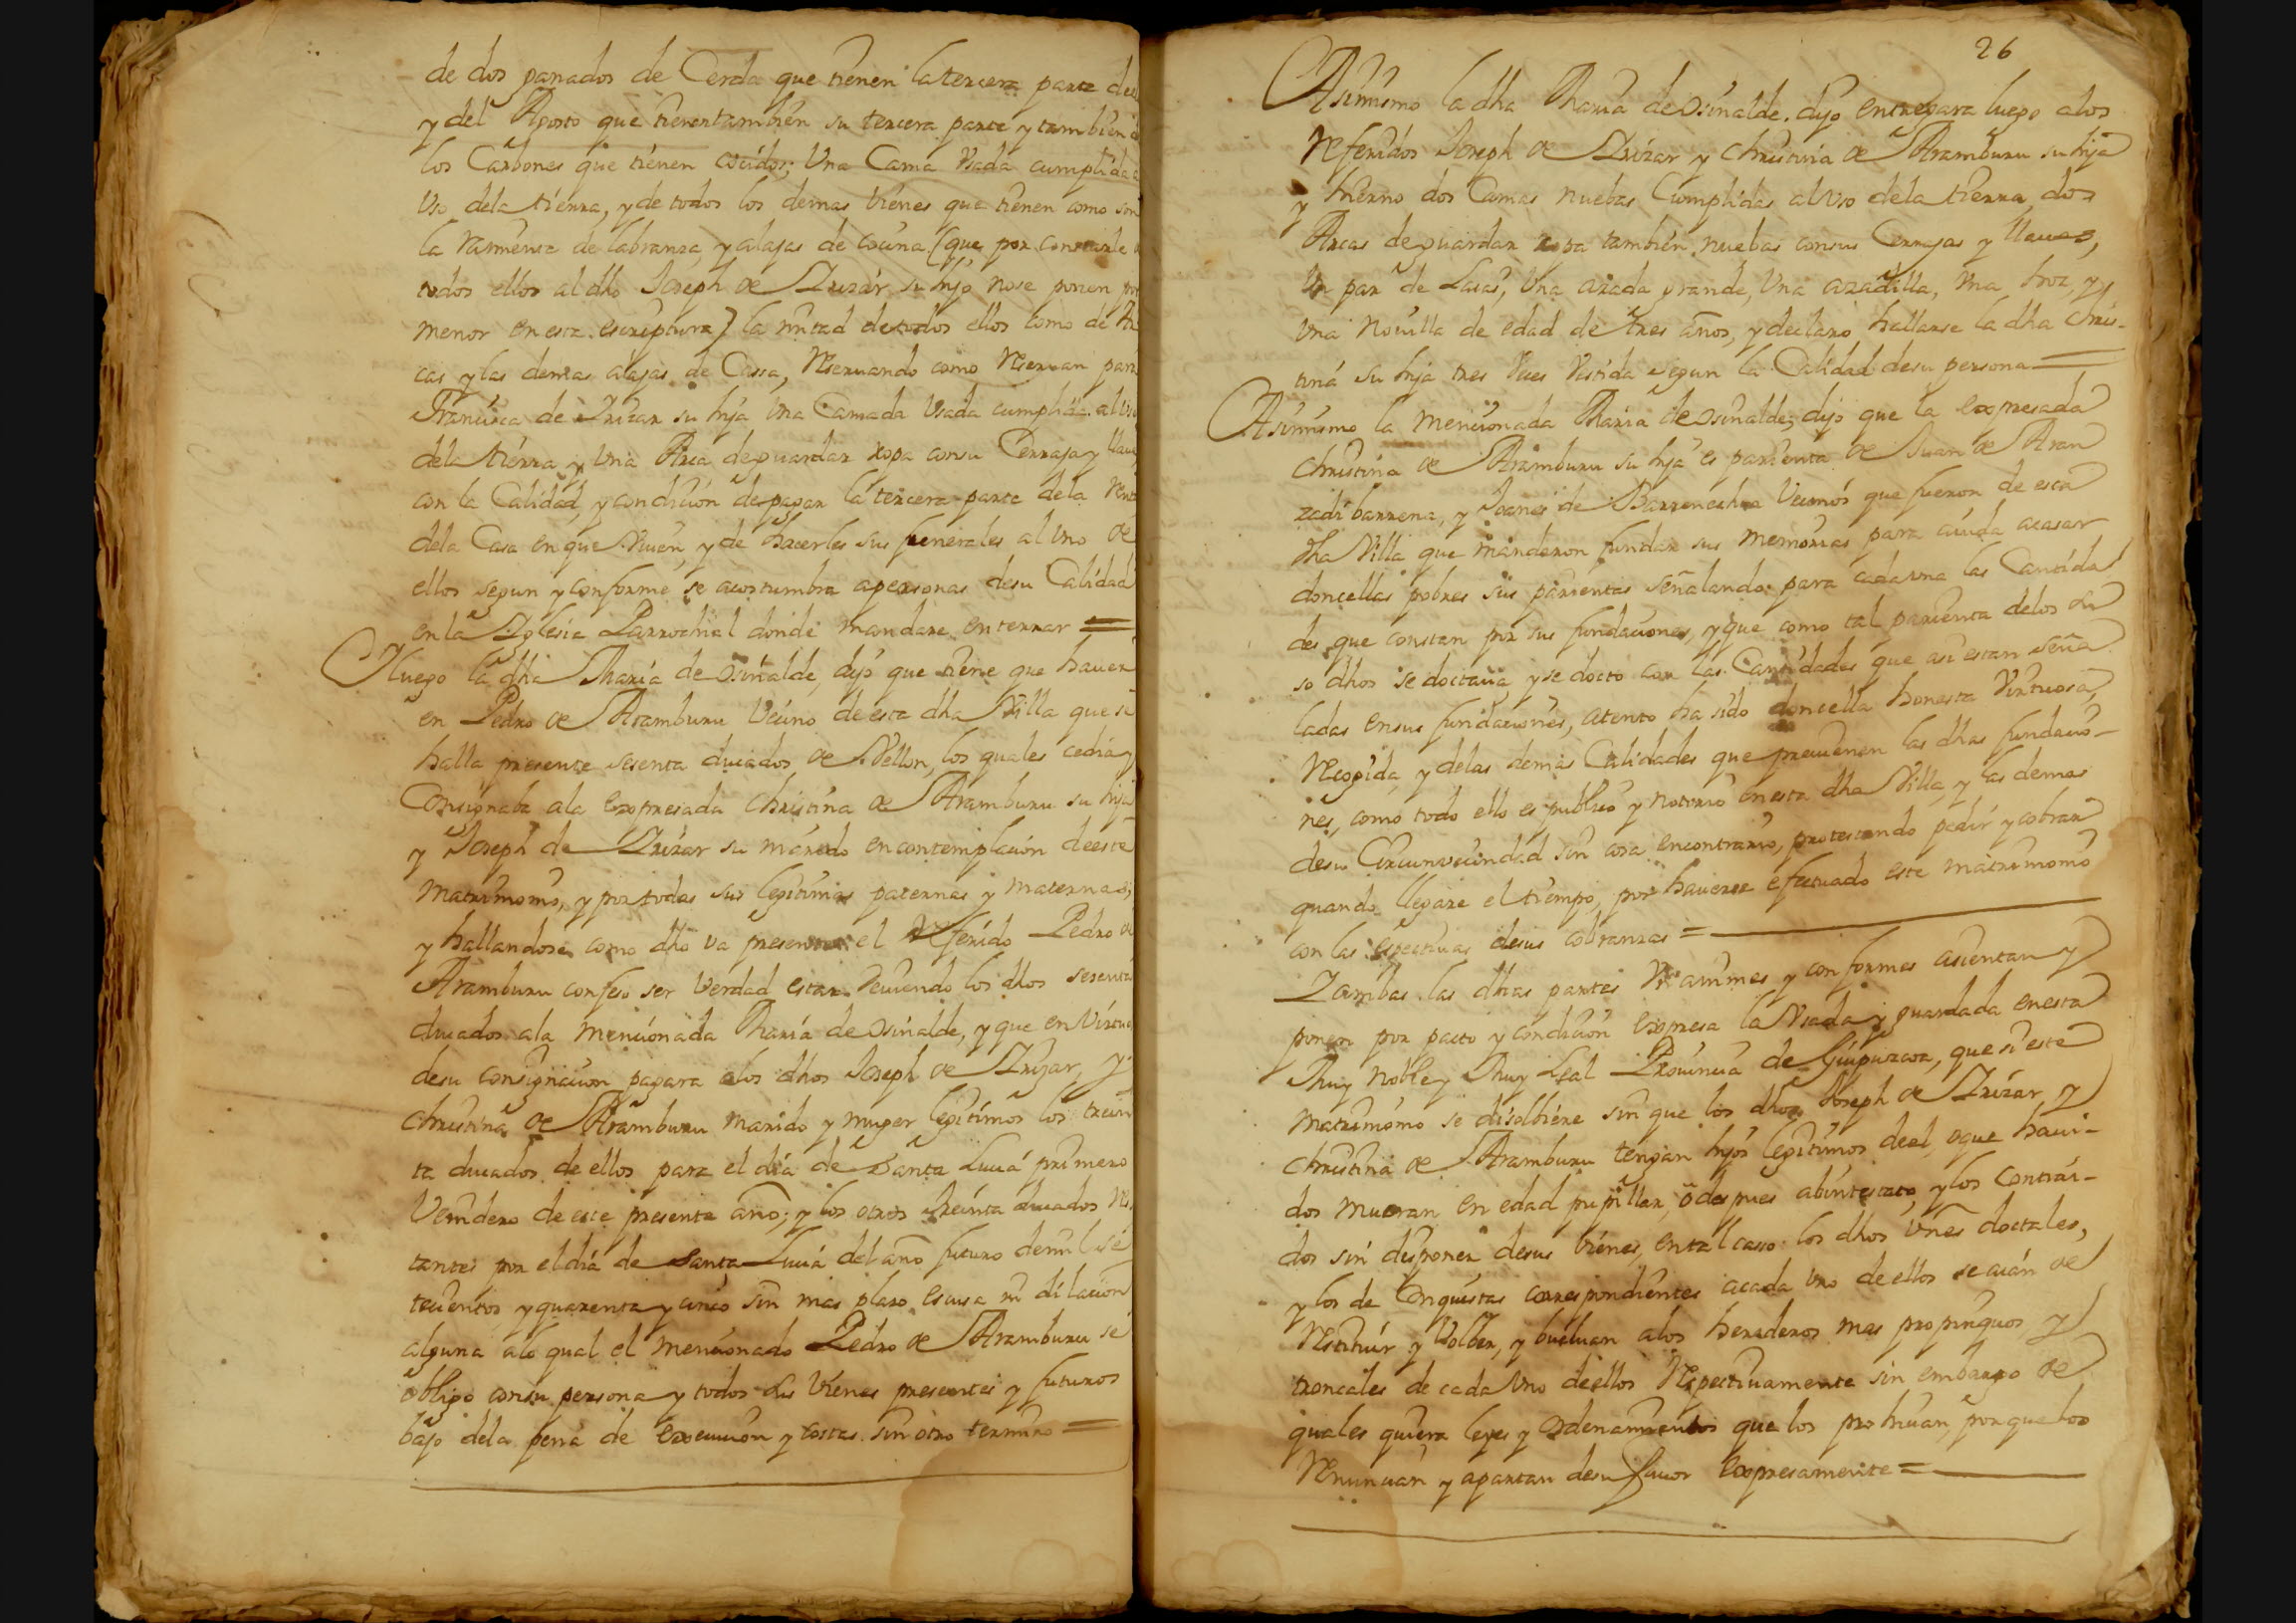 de dos ganados de Cerda que tienen la tercera parte de
y del Agosto que tienen tambien su tercera parte y tambien
los Carbones que tienen cocidos; Una Cama Usada cumplida
Uso dela tierra, y de todos los demas vienes que tienen como son
la rasmense de labranza y alajas de cocina (que por constarle
todos ellos al dho Joseph de Yrizar su hijo nose ponen por
menor en esta escriptura) la mitad de todos ellos como de Ar
cas y las demas alajas de Cassa, Reseruando como Reseruan para
Francisca de Yrizar su hija Una Camada Usada cumplida al Uso
dela tierra y Una Arca de guardar ropa consu Cerraja y llaue
con la Calidad, y condicion de pagar la tercera parte dela Rent
dela Casa en que Viuen, y de hacerles sus funerales al Uno de
ellos segun y conforme se acostumbra apersonas desu Calidad
en la Yglesia Parrochial donde mandare enterrar =
Y luego la dha Maria de Osinalde, dijo que tiene que hauer
en Pedro de Aramburu Vecino de esta dha Villa que se
halla presente sesenta ducados de Vellon, los quales cedia y
Consignaba ala expresada Christina de Aramburu su hija
y Joseph de Yrizar su marido en contemplacion de este
Matrimonio, y por todas sus legitimas paternas y maternas;
y hallandose como dho va presente el Referido Pedro de
Aramburu confeso ser Verdad estar deuiendo los dhos sesenta
ducados ala mencionada Maria de Osinalde, y que en Virtud
desu consignacion pagara alos dhos Joseph de Yrizar, y
Christina de Aramburu marido y muger legitimos los trein
ta ducados de ellos para el dia de Santa Lucia primero
Venidero de este presente año; y los otros treinta ducados Res
tantes por el dia de Santa Lucia del año futuro demil se
tecientos y quarenta y cinco sin mas plazo escusa ni dilacion
alguna alo qual el mencionado Pedro de Aramburu se
obligo consu persona y todos sus Vienes presentes y futuros
bajo dela pena de execucion y costas sin otro termino =
26
Asimismo la dha Maria de Osinalde. dijo entregara luego alos
Referidos Joseph de Yrizar y Christina de Aramburu su hija
y hierno dos Camas nuebas Cumplidas al Uso dela tierra, dos
Arcas de guardar ropa tambien nuebas consus Cerrajas y llaues,
Un par de Layas, Una azada grande, Una azadilla, Una hoz, y
Una Nouilla de edad de tres años, y declaro hallarse la dha Chris-
tina su hija tres Veces Vestida segun la Calidad desu persona =
Asimismo la mencionada Maria de Osinalde, dijo que la expresada
Christina de Aramburu su hija es parienta de Juan de Aran
zadi barrena, y Joanes de Barrenechea Vecinos que fueron de esta
dha Villa que mandaron fundar sus memorias para aiuda acasar
doncellas pobres sus parientas señalando para cada una las Cantida
des que constan por sus fundaciones, y que como tal parienta delos su
so dhos se doctaua y se docto con las Cantidades que asi estan seña
ladas ensus fundaciones, atento ha sido doncella honesta Virtuosa,
Recogida, y delas demas Calidades que preuienen las dhas fundacio-
nes, como todo ello es publico y notorio en esta dha Villa, y las demas
desu Circunvecindad sin cosa encontrario, protestando pedir y cobrar
quando llegare el tiempo, por hauerse efectuado este matrimonio
con las espectiuas desus cobranzas =
Y ambas las dhas partes Unanimes y conformes asientan y
ponen por pacto y condicion expresa la Usada y guardada enesta
Muy Noble y Muy Leal Prouincia de Guipuzcoa, que si este
matrimonio se disolbiere sin que los dhos Joseph de Yrizar y
Christina de Aramburu tengan hijos legitimos deel, oque haui-
dos mueran en edad pupillar, o despues abintestato, y los Contrai-
dos sin disponer desus bienes, en tal casso los dhos Vnes doctales,
y los de Conquistas correspondientes acada Uno de ellos se aian de
Restituir y Volber, y buelvan alos herederos mas propinquos y
troncales de cada Uno deellos Respectiuamente sin embargo de
quales quiera leyes y ordenamientos que los prohiuan, porque los
Renuncian y apartan desu fauor expresamente =